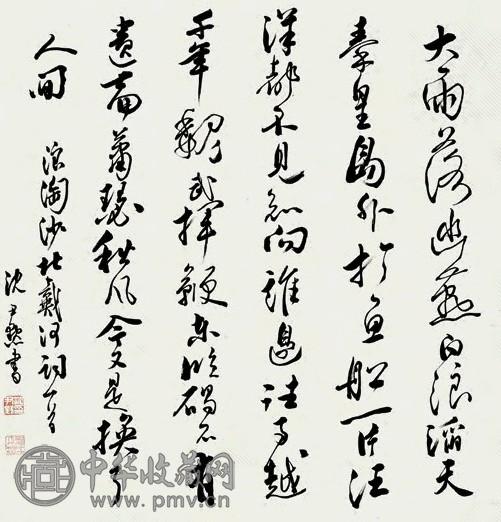 大雨落幽燕白浪滔天
秦皇島外打魚船一片汪
洋都不見知向誰邊往事越
千年魏武揮鞭東臨碣石有
遺篇蕭瑟秋風今又是換了
人間 浪淘沙北戴河詞一首
沈尹默書
中华收藏网
www.pmv.cn